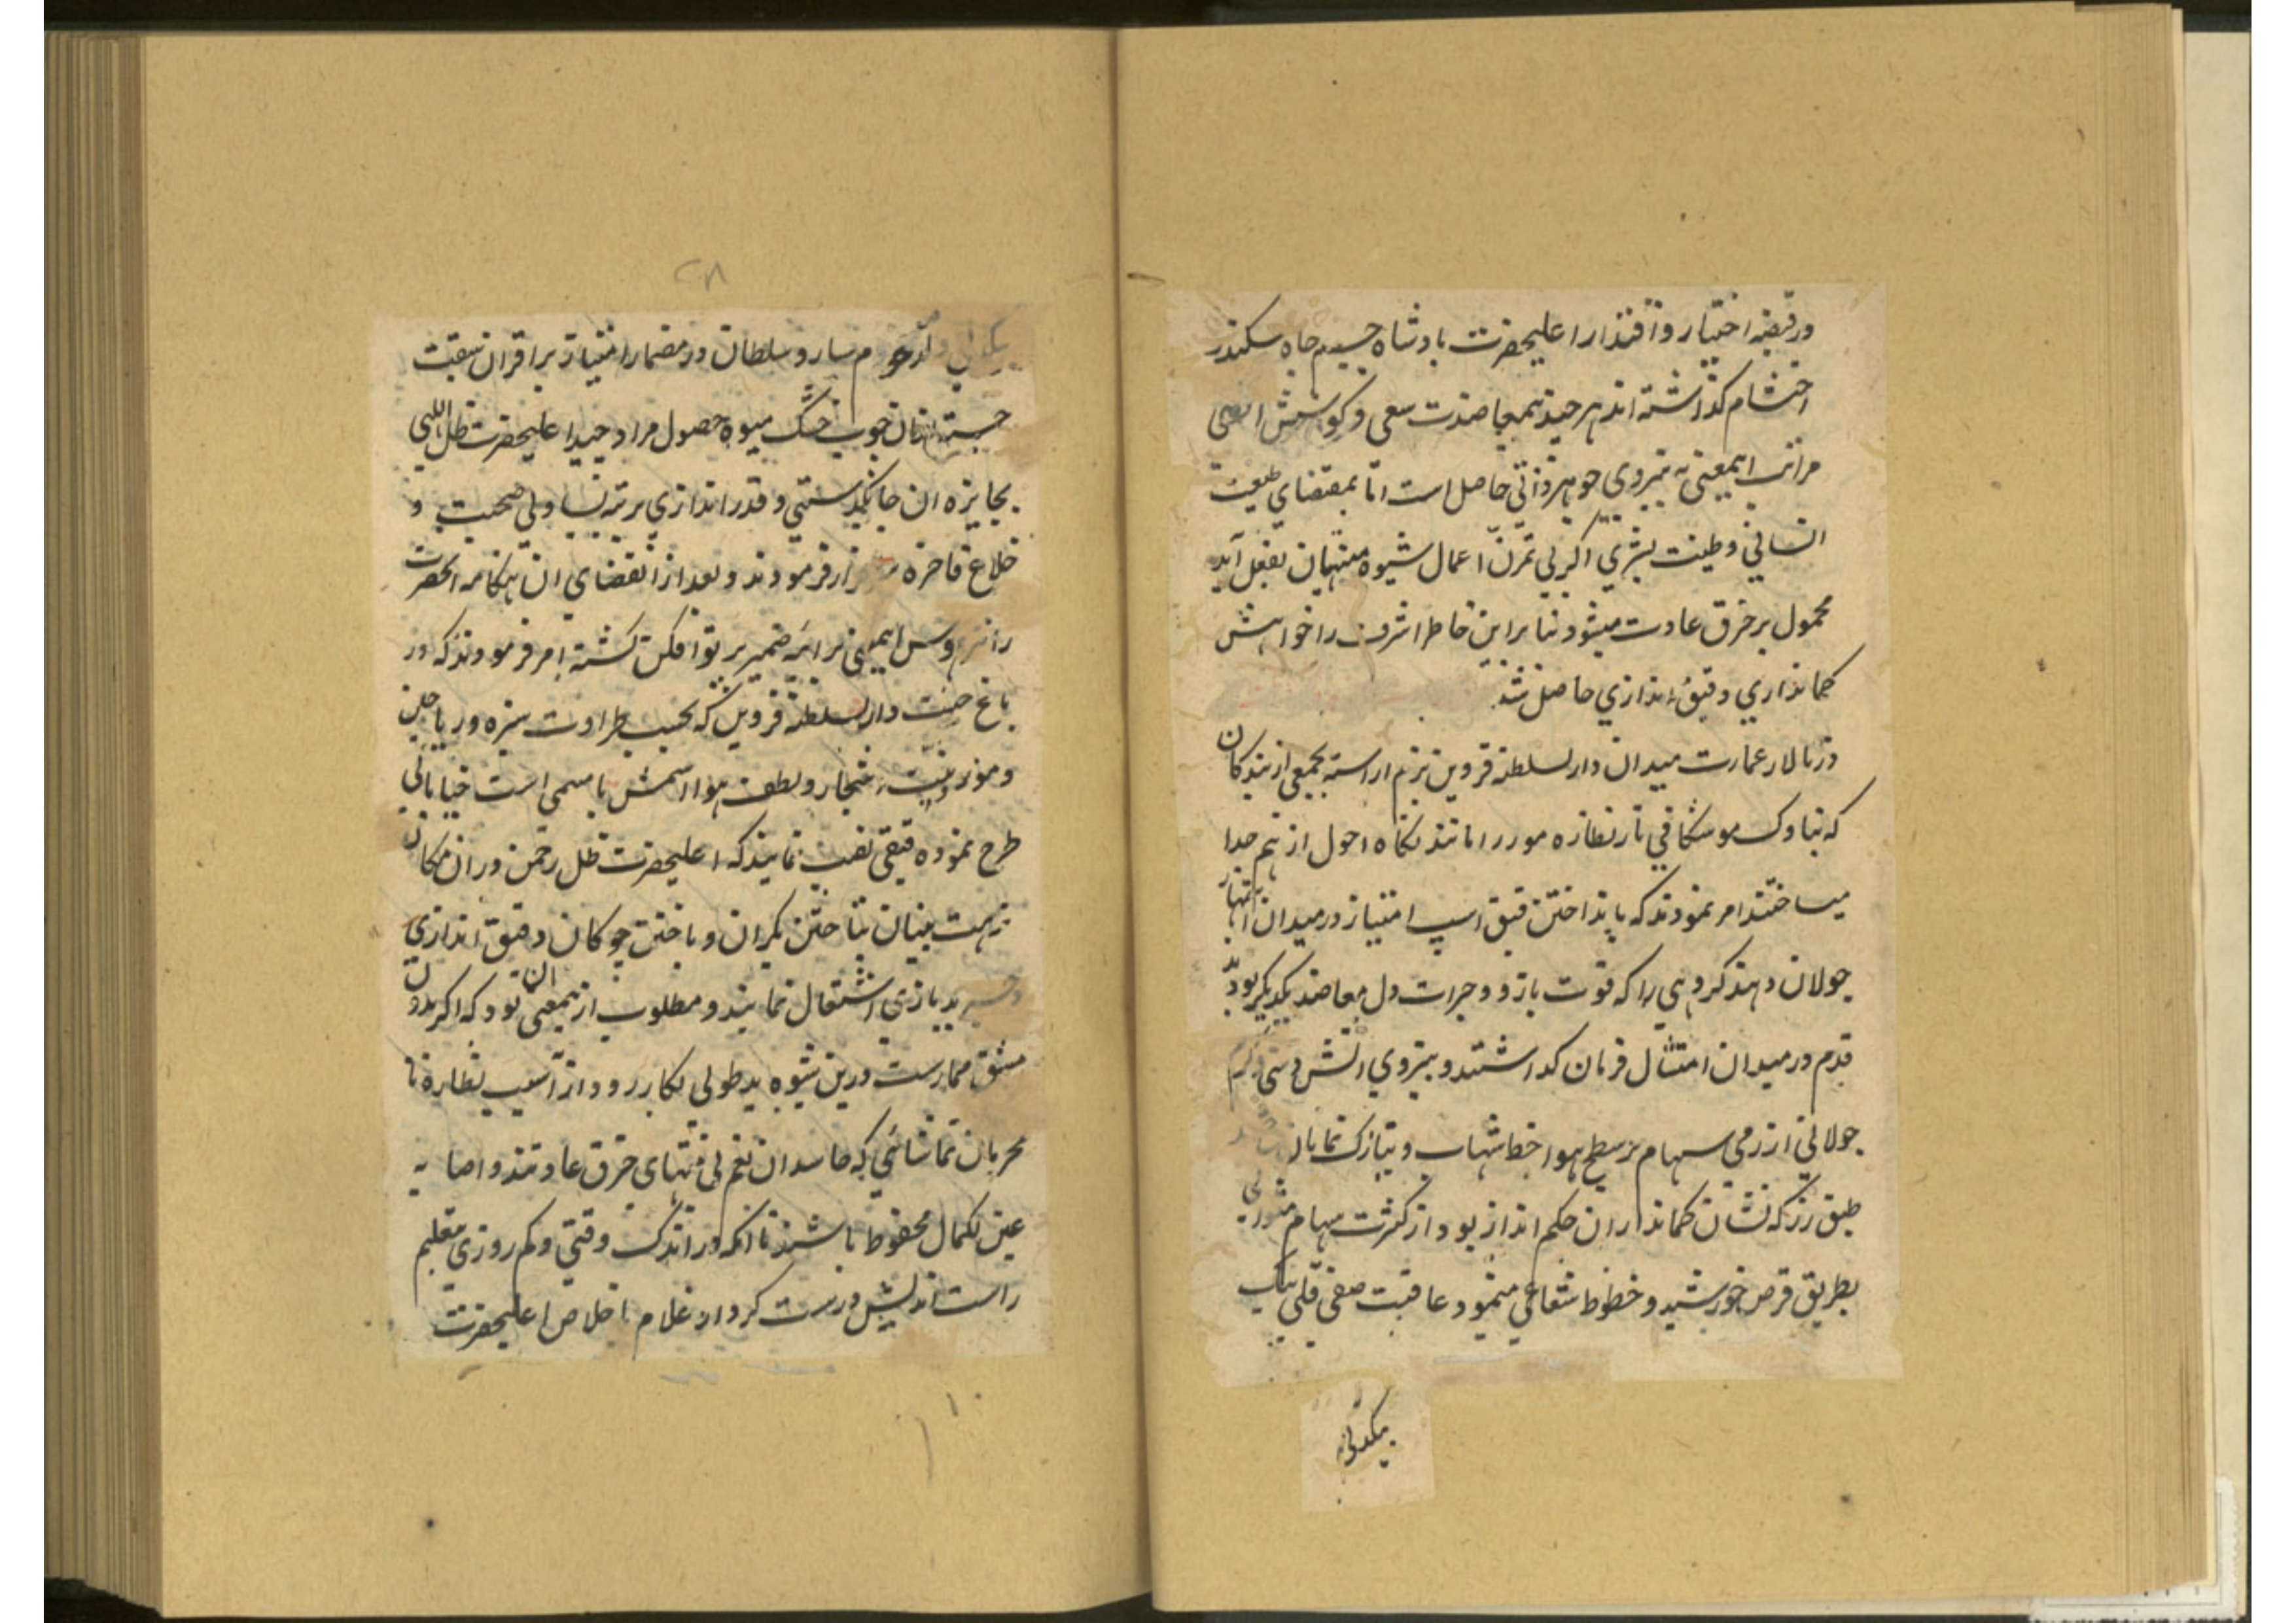 در قبضه اختیار و اقتدار اعلیحضرت پادشاه جمجاه سکندر
احتشام گذاشته اند هر چند بمعاضدت سعی و کوشش اقصی
مراتب اینمعنی به نیروی جوهر ذاتی حاصل است اما بمقتضای طبیعت
انسانی و طینت بشری اگر بی تمرن اعمال شیوه منتهیان بفعل آید
محمول بر خرق عادت میشود بنا براین خاطر اشرف را خواهش
کمانداری و قبق اندازی حاصل شد
در تالار عمارت میدان دارلسلطنه قزوین بزم اراسته بجمعی از بندکان
که بناوک موشکافی تار نظاره مور را مانند نکاه احول از هم جدا
میساختند امر نمودند که بانداختن قبق اسپ امتیاز در میدان اشتهار
جولان دهند کروهی را که قوت بازو و جرات دل معاضد یکدیکر بود
قدم در میدان امتثال فرمان کذاشتند و بنیروی اتش دستی کرم
جولانی از رمی سهام بر سطح هوا خط شهاب و نیازک نمایان
طبق زر که نشان کمانداران حکم انداز بود از کثرت سهام متوالی
بطریق قرص خورشید و خطوط شعاعی مینمود عاقبت صفی قلی بیک
بیکدلی
۲۸
یکدلی ولد مرحوم سارو سلطان در مضمار امتیاز بر اقران سبقت
جسته ازان چوب خشک میوه حصول مراد چید اعلیحضرت ظل اللهی
بجایزه ان چابکدستی و قدر اندازی برتبه یساولی صحبت و
خلاع فاخره سرافراز فرمودند و بعد از انقضای ان هنکامه انحضرت
را اینمعنی بر اینه ضمیر پرتو افکن کشته امر فرمودند که در
باغ جنت دارلسلطنه قزوین که بحسب طراوت سبزه و ریاحین
و موزونیت اشجار و لطف هوا اسمش با مسمی است خیابانی
طرح نموده قبقی نصب نمایند که اعلیحضرت ظل رحمن دران مکان
نزهت بنیان بتاختن یکران و باختن چوکان و قبق اندازی
و جریدبازی اشتغال نمایند و مطلوب ازینمعنی ان بود که اکر بدون
مشق ممارست درین شیوه ید طولی بکار رود از آسیب نظاره نا
محرمان تماشائی که حاسدان نعم بی منتهای خرق عادتند و اصابه
عین الکمال محفوظ باشند تا انکه در اندک وقتی و کم روزی تعلیم
راست اندیش درست کردار غلام با خلاص اعلیحضرت